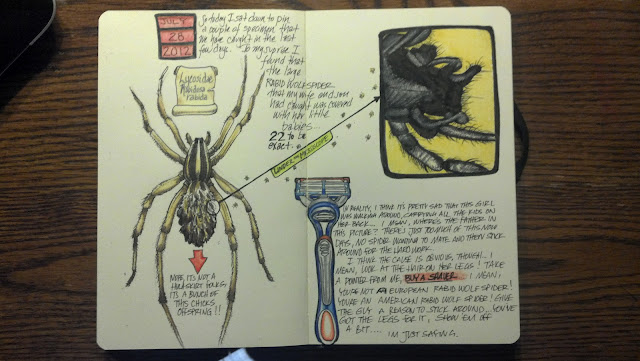 JULY
28
2012
So today I sat down to pin
a couple of specimen that
we have caught in the last
few days. To my suprise I
found that
the large
RABID WOLFSPIDER
that my wife and son
had caught was covered
with her little
babies...
22 to be
exact.
Lycosidae
Rabidosa
rabida
UNDER THE MICROSCOPE
NOPE, ITS NOT A
HULA SKIRT FOLKS,
IT'S A BUNCH OF
THIS CHICKS,
OFFSPRING!!
IN REALITY, I THINK IT'S PRETTY SAD THAT THIS GIRL
WAS WALKING AROUND, CARRYING ALL THE KIDS ON
HER BACK.... I MEAN, WHERE'S THE FATHER IN
THIS PICTURE? THERE'S JUST TOO MUCH OF THIS NOW
DAYS, NO SPIDER WANTING TO MATE AND THEN STICK
AROUND FOR THE HARD WORK.
I THINK THE CAUSE IS OBVIOUS, THOUGH... I
MEAN, LOOK AT THE HAIR ON HER LEGS! TAKE
A POINTER FROM ME, BUY A SHAVER... I MEAN,
YOU'RE NOT A EUROPEAN RABID WOLF SPIDER!
YOU'RE AN AMERICAN RABID WOLF SPIDER! GIVE
THE GUY A REASON TO STICK AROUND....YOU'VE
GOT THE LEGS FOR IT, SHOW 'EM OFF
A BIT....
I'M JUST SAYING.